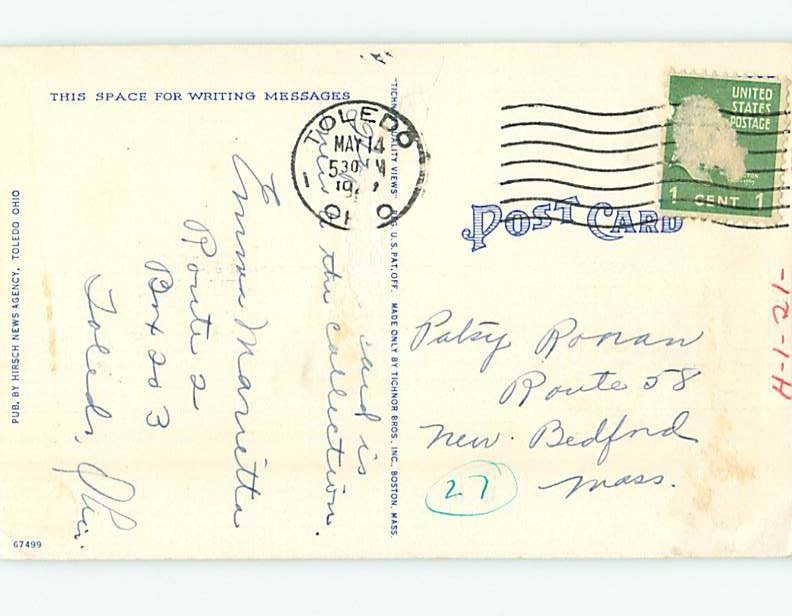 THIS SPACE FOR WRITING MESSAGES
card is
new in the collection.
Emma Marietta
Route 2
Box 203
Toledo, Ohio.
PUB. BY HIRSCH NEWS AGENCY, TOLEDO OHIO
67499
"TICHNOR QUALITY VIEWS" REG. U.S. PAT. OFF. MADE ONLY BY TICHNOR BROS., INC., BOSTON, MASS.
TOLEDO
MAY 14
530 PM
OHIO
UNITED
STATES
POSTAGE
1 CENT 1
POST CARD
Patsy Ronan
Route 58
New. Bedford
Mass.
27
H-1-21-